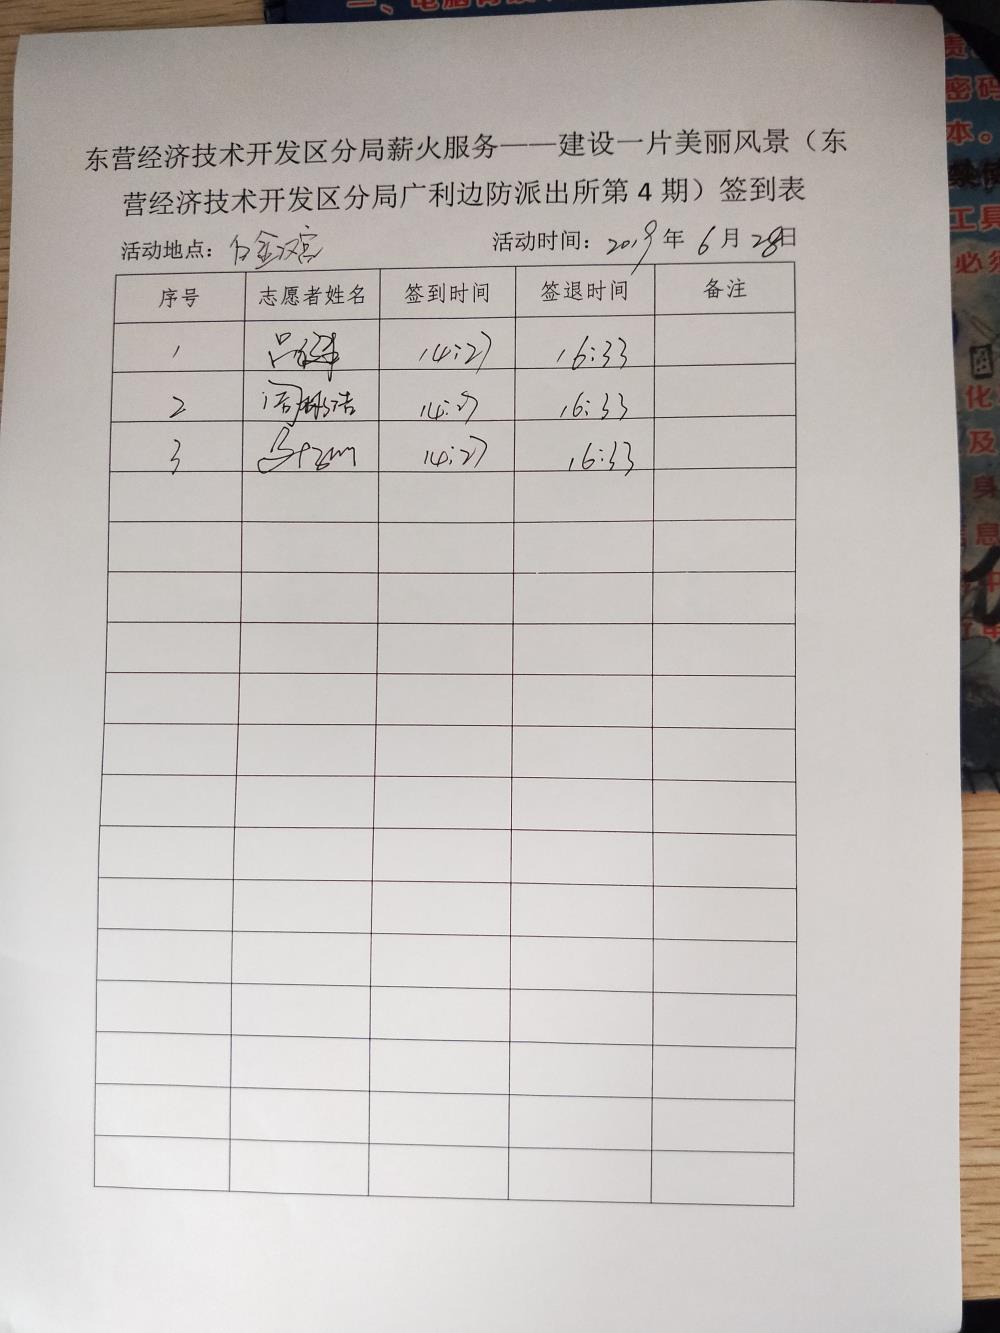 东营经济技术开发区分局薪火服务——建设一片美丽风景（东
营经济技术开发区分局广利边防派出所第 4 期）签到表
活动地点：白金汉宫 活动时间：2019 年 6 月 28日
序号 志愿者姓名 签到时间 签退时间 备注
1 14:27 16:33
2 14:27 16:33
3 14:27 16:33
责
密码
本。
工具
必须
化
及
身
息